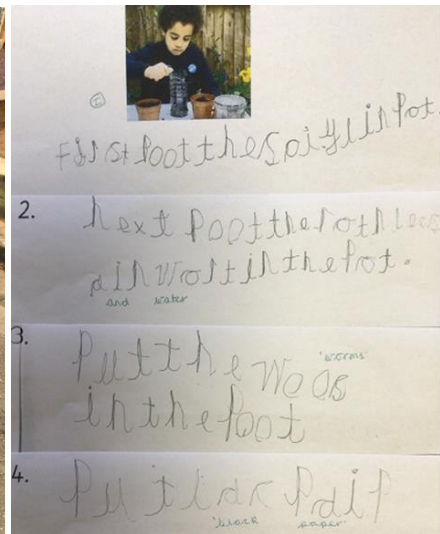 First poot the soiyl in pot.
2.
next poot the roth lees
ain wort in the pot.
and water
3.
Put the woos
'worms'
in the poot
4.
Put lac paip
'black paper'